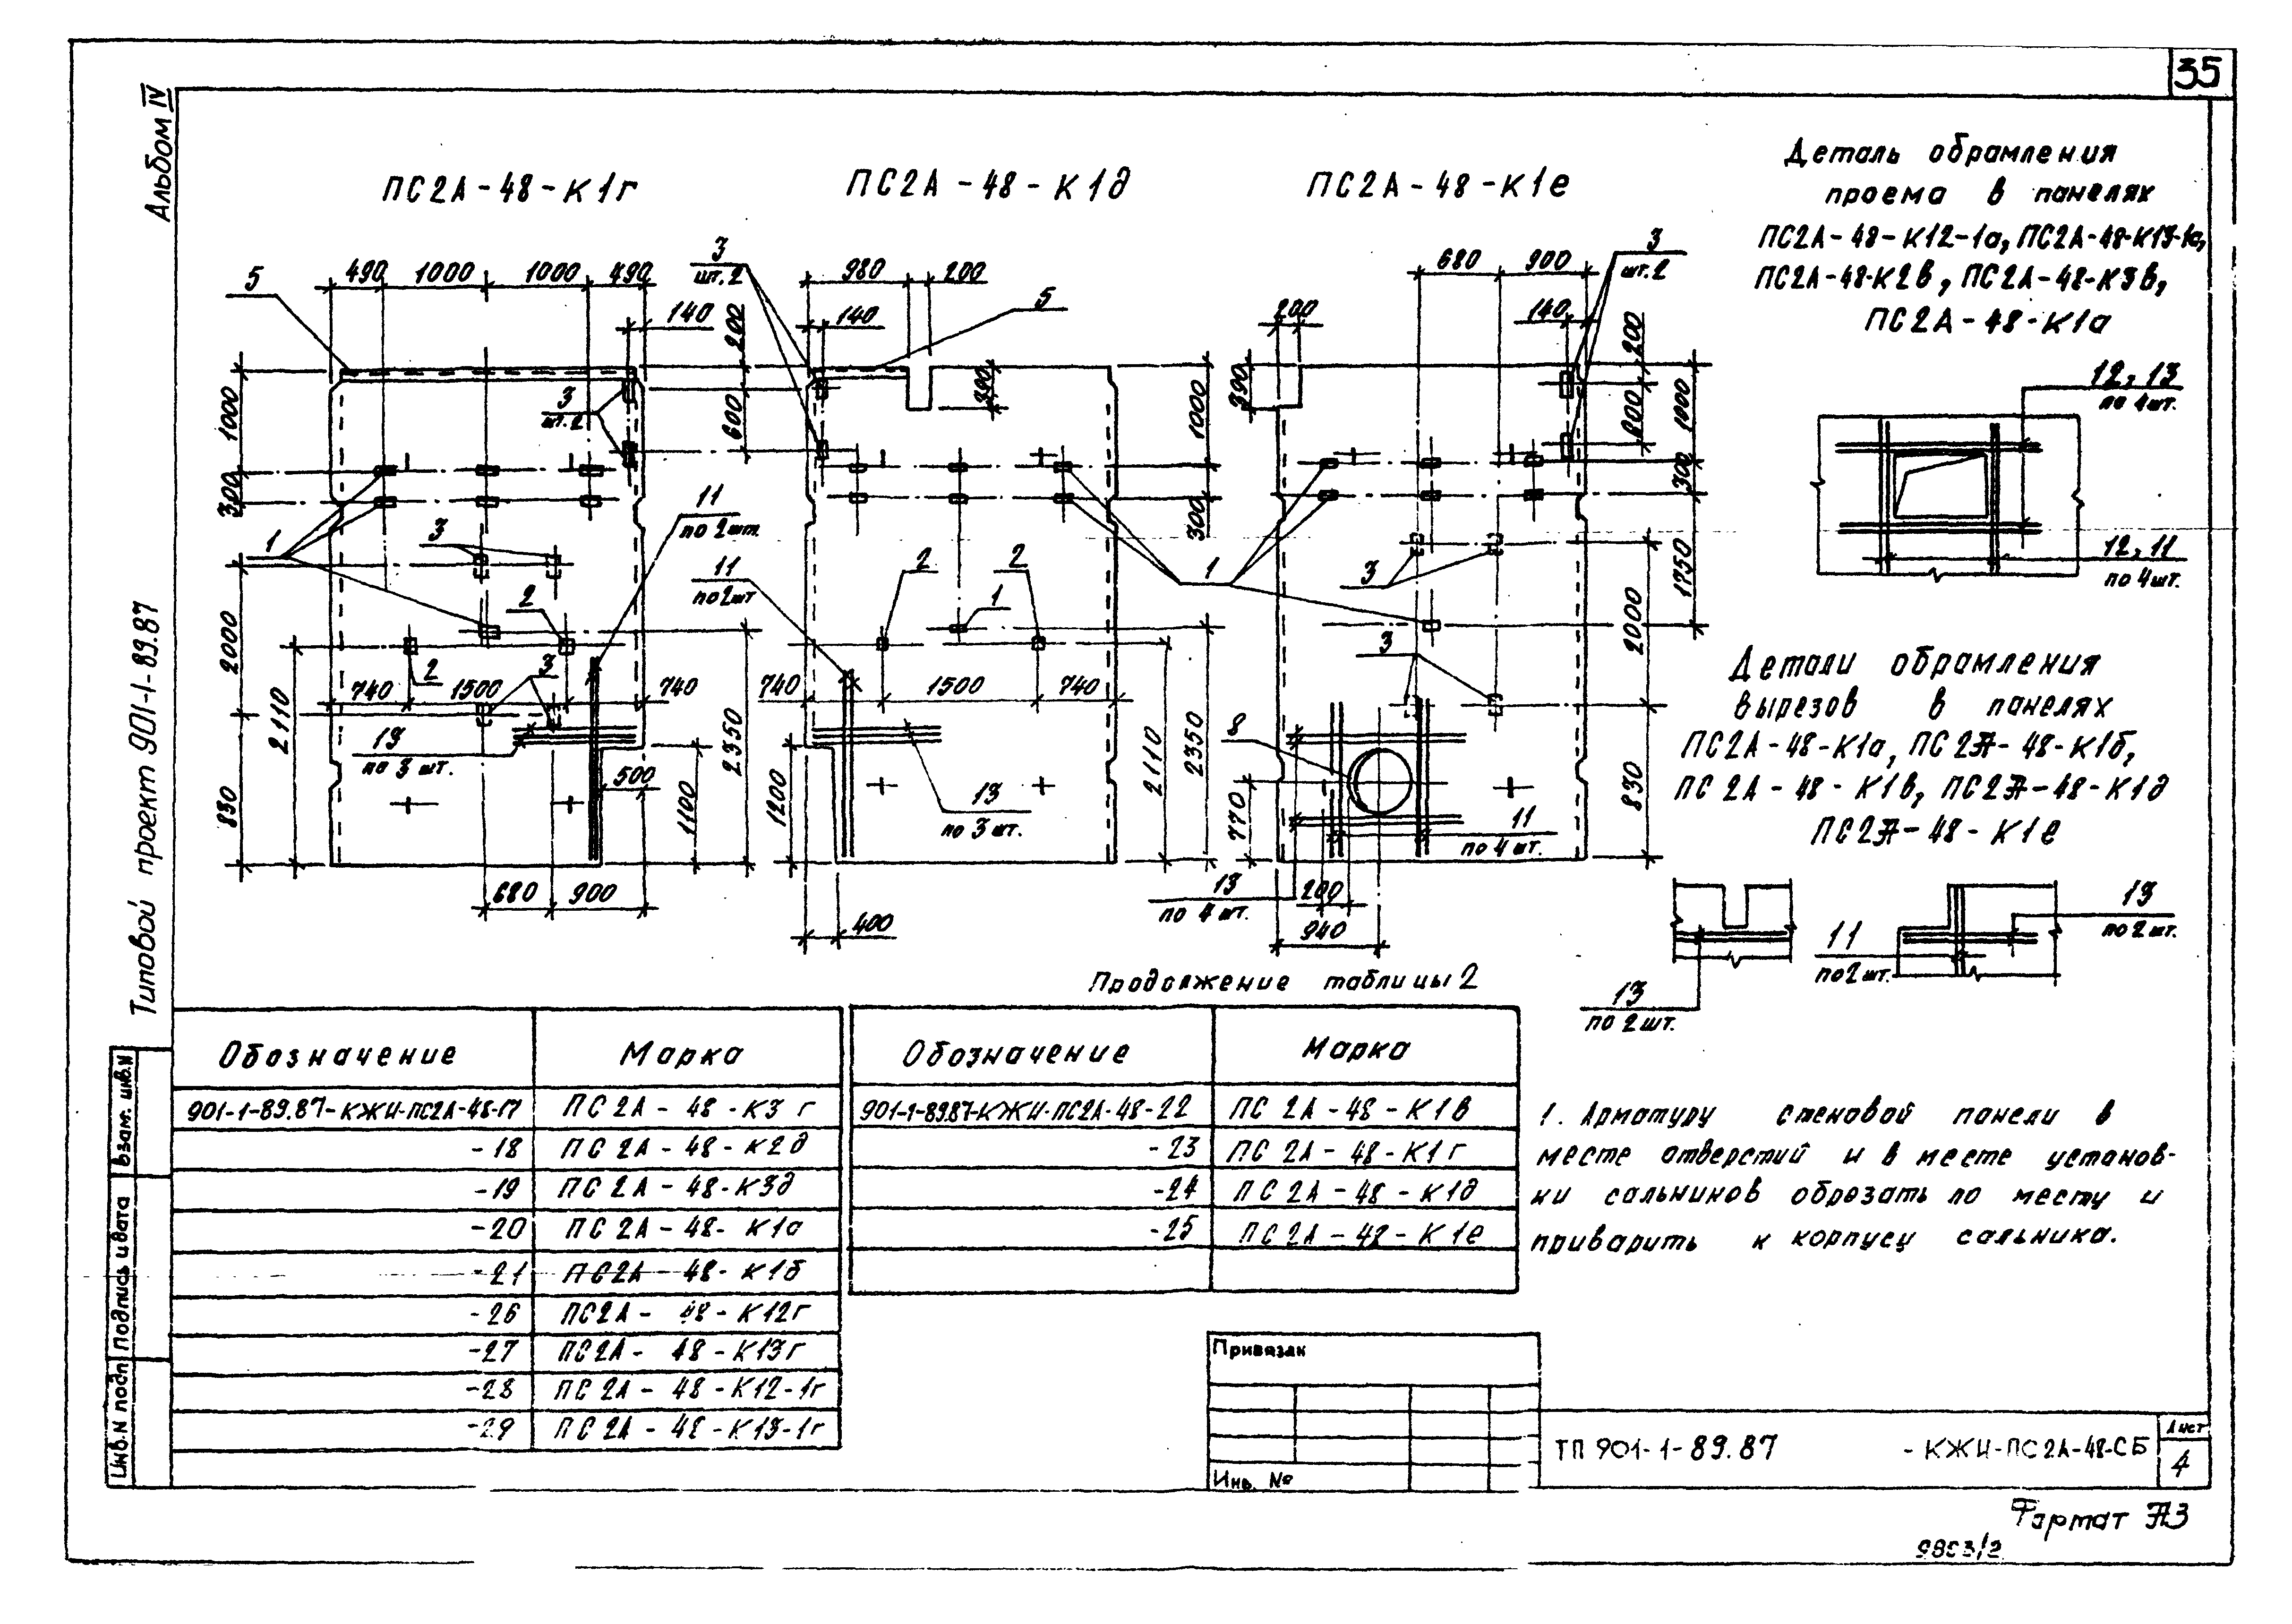 35
Альбом IV
Типовой проект 901-1-89.87
ПС2А-48-К1г
ПС2А-48-К1д
ПС2А-48-К1е
5
490
1000
1000
490
140
200
600
1000
300
2000
830
2110
3
шт.2
1
3
2
2
3
740
1500
740
11
по 2 шт.
13
по 3 шт.
500
1100
2350
680
900
3
шт.2
980
200
140
5
390
1000
300
11
по 2 шт
2
2
1
740
1500
740
1200
13
по 3 шт.
2110
2350
400
1
3
шт.2
680
900
200
140
390
200
600
1000
300
1750
2000
830
3
3
8
770
11
по 4 шт.
13
по 4 шт.
200
940
Деталь обрамления
проема в панелях
ПС2А-48-К12-1а, ПС2А-48-К13-1а,
ПС2А-48-К2в, ПС2А-48-К3в,
ПС2А-48-К1а
12, 13
по 4 шт.
12, 11
по 4 шт.
Детали обрамления
вырезов в панелях
ПС2А-48-К1а, ПС2А-48-К1б,
ПС2А-48-К1в, ПС2А-48-К1д
ПС2А-48-К1е
13
по 2 шт.
11
по 2 шт.
13
по 2 шт.
Продолжение таблицы 2
Обозначение Марка
901-1-89.87-КЖИ-ПС2А-48-17 ПС2А-48-К3г
-18 ПС2А-48-К2д
-19 ПС2А-48-К3д
-20 ПС2А-48-К1а
-21 ПС2А-48-К1б
-26 ПС2А-48-К12г
-27 ПС2А-48-К13г
-28 ПС2А-48-К12-1г
-29 ПС2А-48-К13-1г
Обозначение Марка
901-1-89.87-КЖИ-ПС2А-48-22 ПС2А-48-К1в
-23 ПС2А-48-К1г
-24 ПС2А-48-К1д
-25 ПС2А-48-К1е
1. Арматуру стеновой панели в
месте отверстий и в месте установ-
ки сальников обрезать по месту и
приварить к корпусу сальника.
Взам. инв.N
Подпись и дата
Инв.N подл
Привязак
Инв. №
ТП 901-1-89.87 -КЖИ-ПС2А-48-СБ
Лист
4
Формат А3